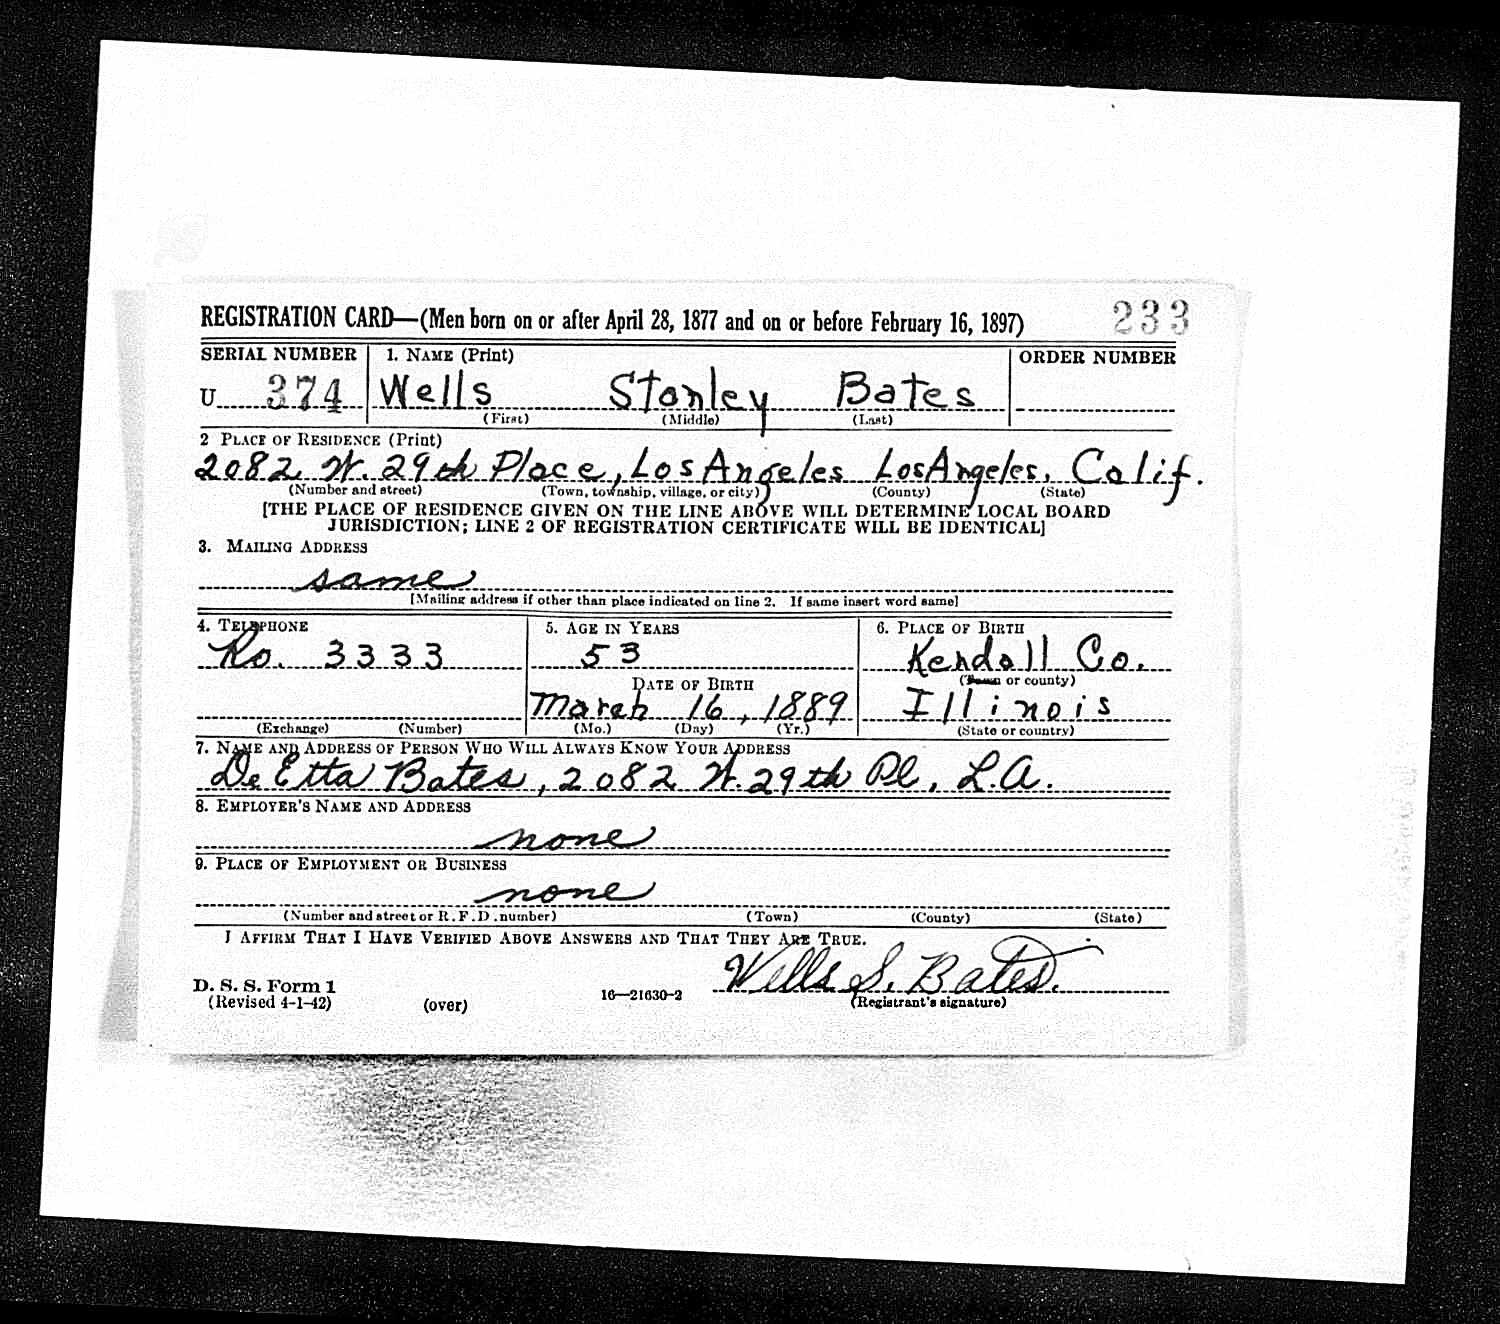 REGISTRATION CARD—(Men born on or after April 28, 1877 and on or before February 16, 1897) 233
SERIAL NUMBER 1. NAME (Print) ORDER NUMBER
U 374 Wells Stanley Bates
(First) (Middle) (Last)
2 PLACE OF RESIDENCE (Print)
2082 W. 29th Place, Los Angeles Los Angeles, Calif.
(Number and street) (Town, township, village, or city) (County) (State)
[THE PLACE OF RESIDENCE GIVEN ON THE LINE ABOVE WILL DETERMINE LOCAL BOARD
JURISDICTION; LINE 2 OF REGISTRATION CERTIFICATE WILL BE IDENTICAL]
3. MAILING ADDRESS
same
[Mailing address if other than place indicated on line 2. If same insert word same]
4. TELEPHONE 5. AGE IN YEARS 6. PLACE OF BIRTH
Ro. 3333 53 Kendall Co.
DATE OF BIRTH (Town or county)
March 16, 1889 Illinois
(Exchange) (Number) (Mo.) (Day) (Yr.) (State or country)
7. NAME AND ADDRESS OF PERSON WHO WILL ALWAYS KNOW YOUR ADDRESS
De Etta Bates, 2082 W. 29th Pl, L.A.
8. EMPLOYER'S NAME AND ADDRESS
none
9. PLACE OF EMPLOYMENT OR BUSINESS
none
(Number and street or R.F.D. number) (Town) (County) (State)
I AFFIRM THAT I HAVE VERIFIED ABOVE ANSWERS AND THAT THEY ARE TRUE.
Wells S. Bates.
D. S. S. Form 1
(Revised 4-1-42) (over) 16—21630-2 (Registrant's signature)